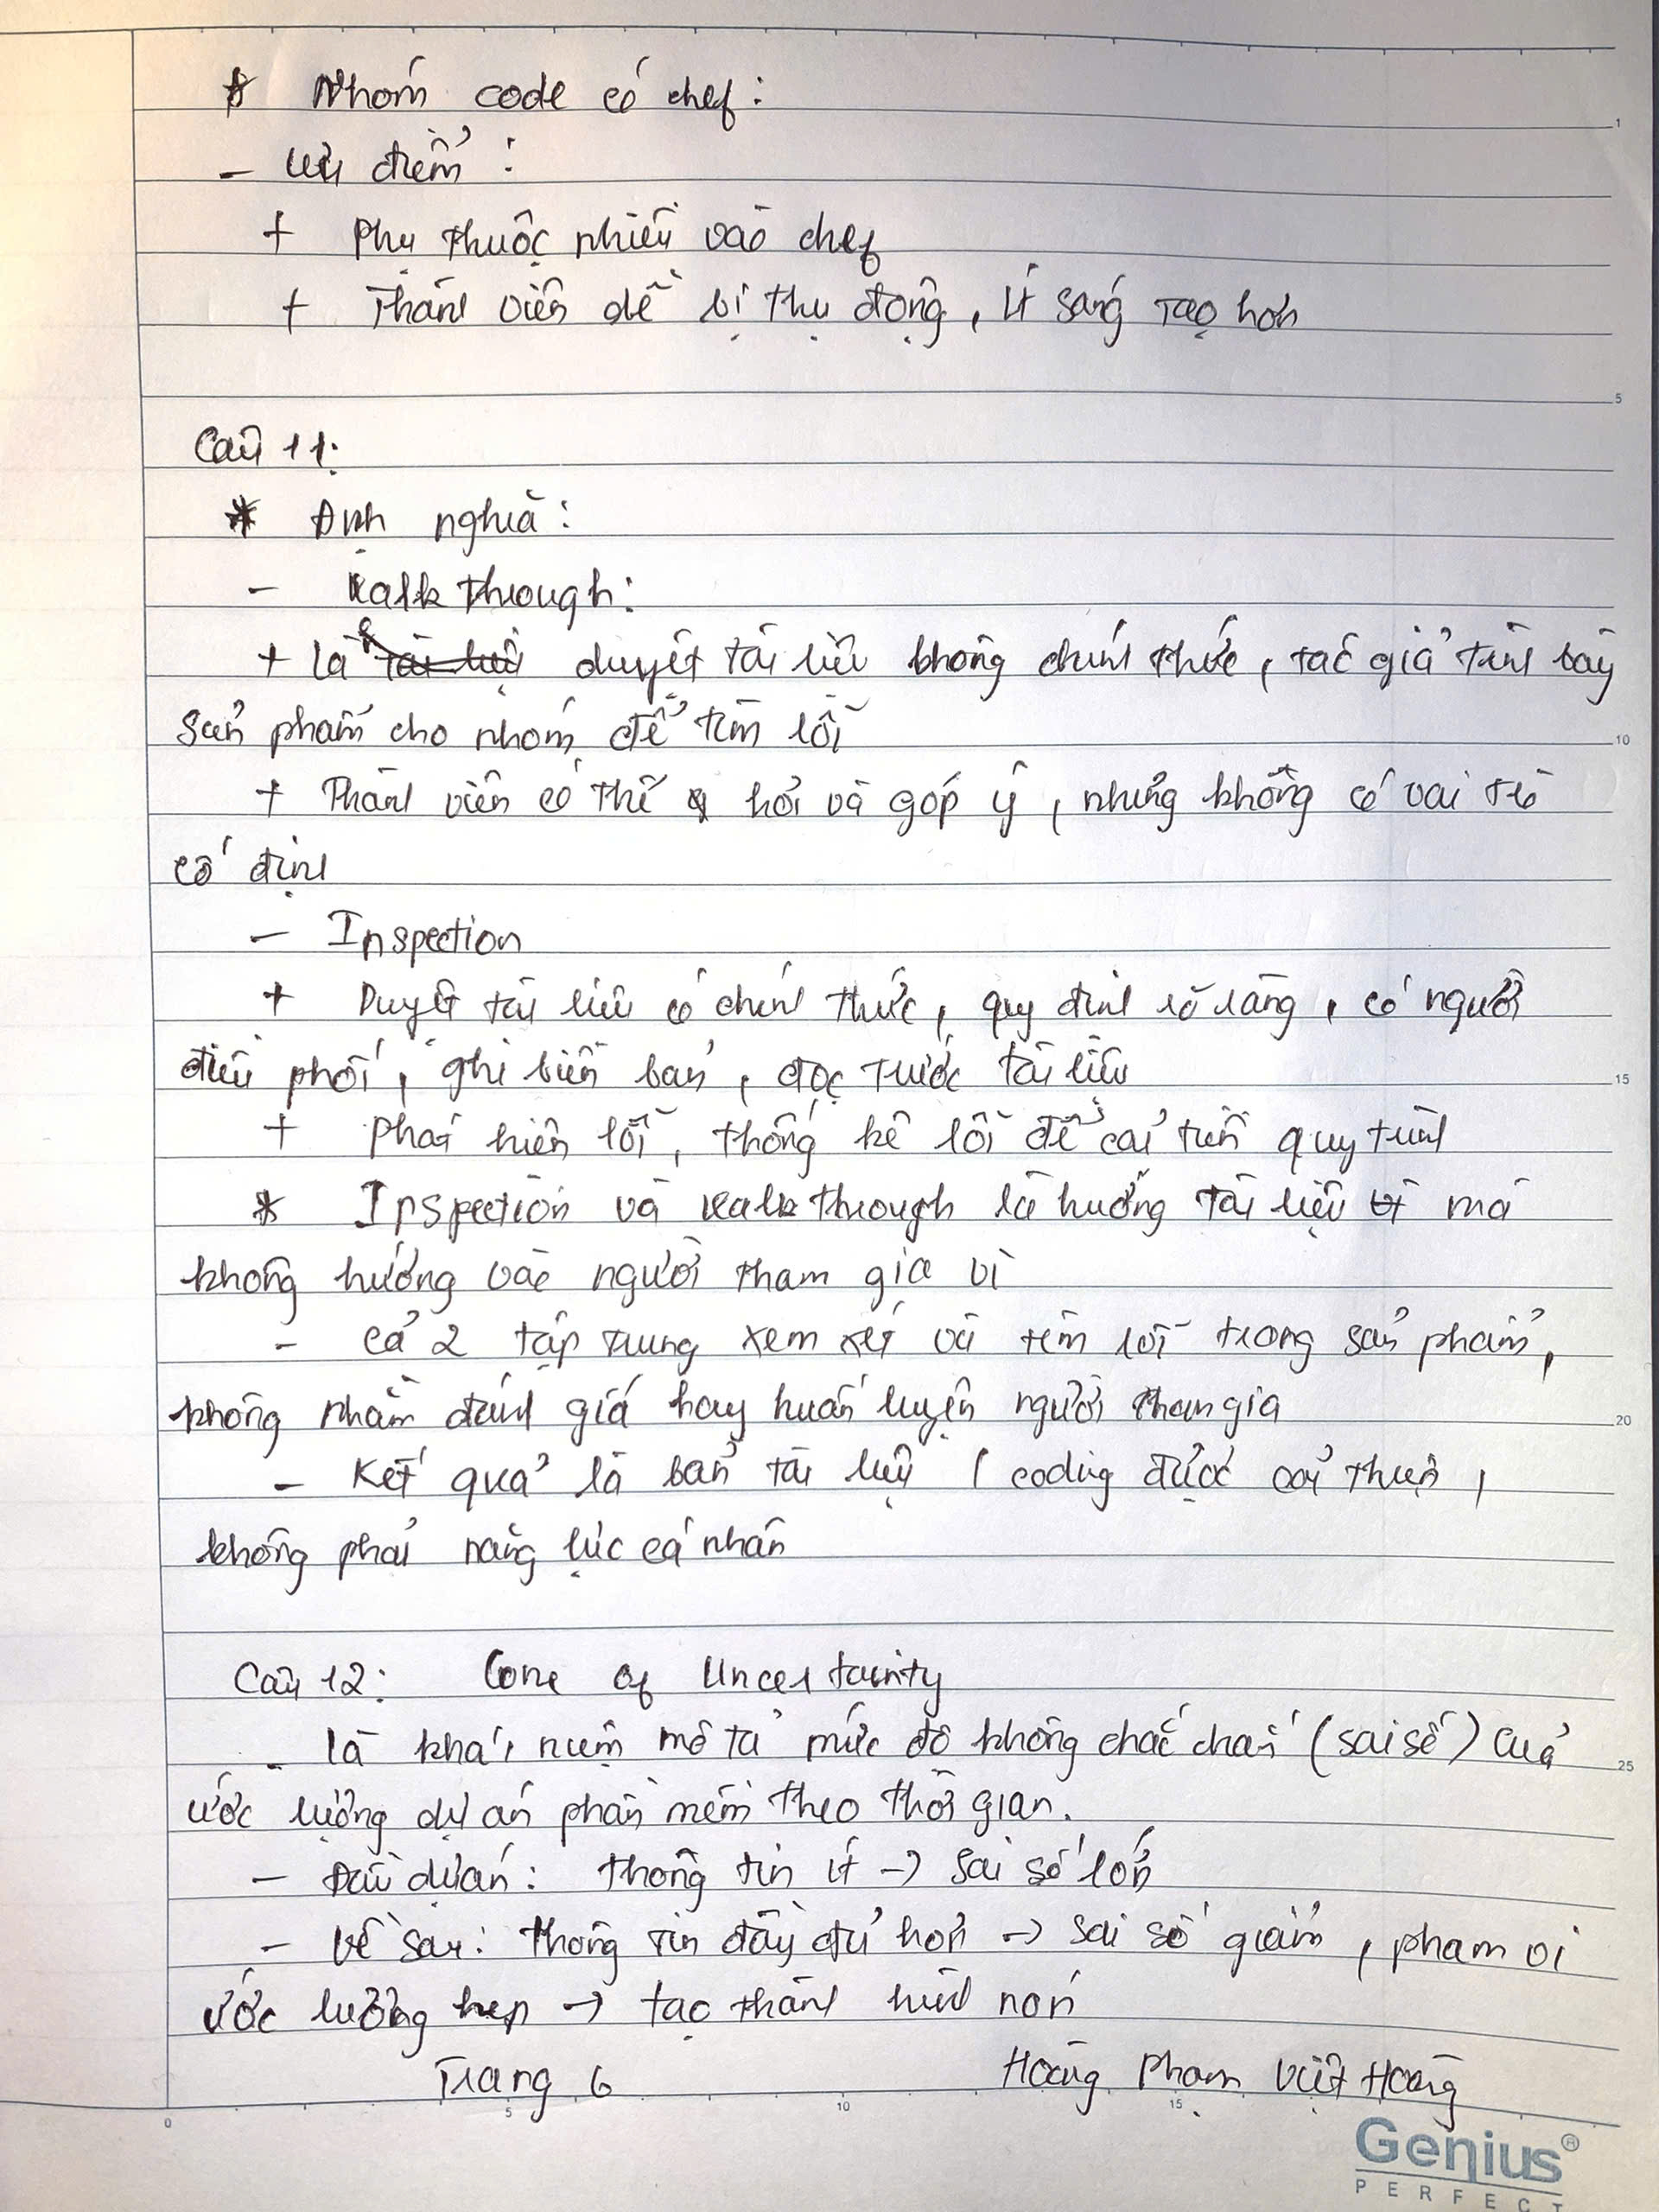 * Nhóm code có chef:
- Ưu điểm:
+ Phụ thuộc nhiều vào chef
+ Thành viên dễ bị thụ động, ít sáng tạo hơn
Câu 11:
* Định nghĩa:
- Walkthrough:
+ Là duyệt tài liệu không chính thức, tác giả trình bày
sản phẩm cho nhóm để tìm lỗi
+ Thành viên có thể hỏi và góp ý, nhưng không có vai trò
cố định
- Inspection
+ Duyệt tài liệu có chính thức, quy định rõ ràng, có người
điều phối, ghi biên bản, đọc trước tài liệu
+ Phát hiện lỗi, thống kê lỗi để cải tiến quy trình
* Inspection và walkthrough là hướng tài liệu mà
không hướng vào người tham gia vì
- Cả 2 tập trung xem xét và tìm lỗi trong sản phẩm,
không nhằm đánh giá hay huấn luyện người tham gia
- Kết quả là bản tài liệu / coding được cải thiện,
không phải năng lực cá nhân
Câu 12: Cone of Uncertainity
- Là khái niệm mô tả mức độ không chắc chắn (sai số) của
ước lượng dự án phần mềm theo thời gian.
- Đầu dự án: thông tin ít → sai số lớn
- Về sau: thông tin đầy đủ hơn → sai số giảm, phạm vi
ước lượng hẹp → tạo thành hình nón
Trang 6 Hoàng Phạm Việt Hoàng
1
5
10
15
20
25
0 5 10 15
Genius®
PERFECT